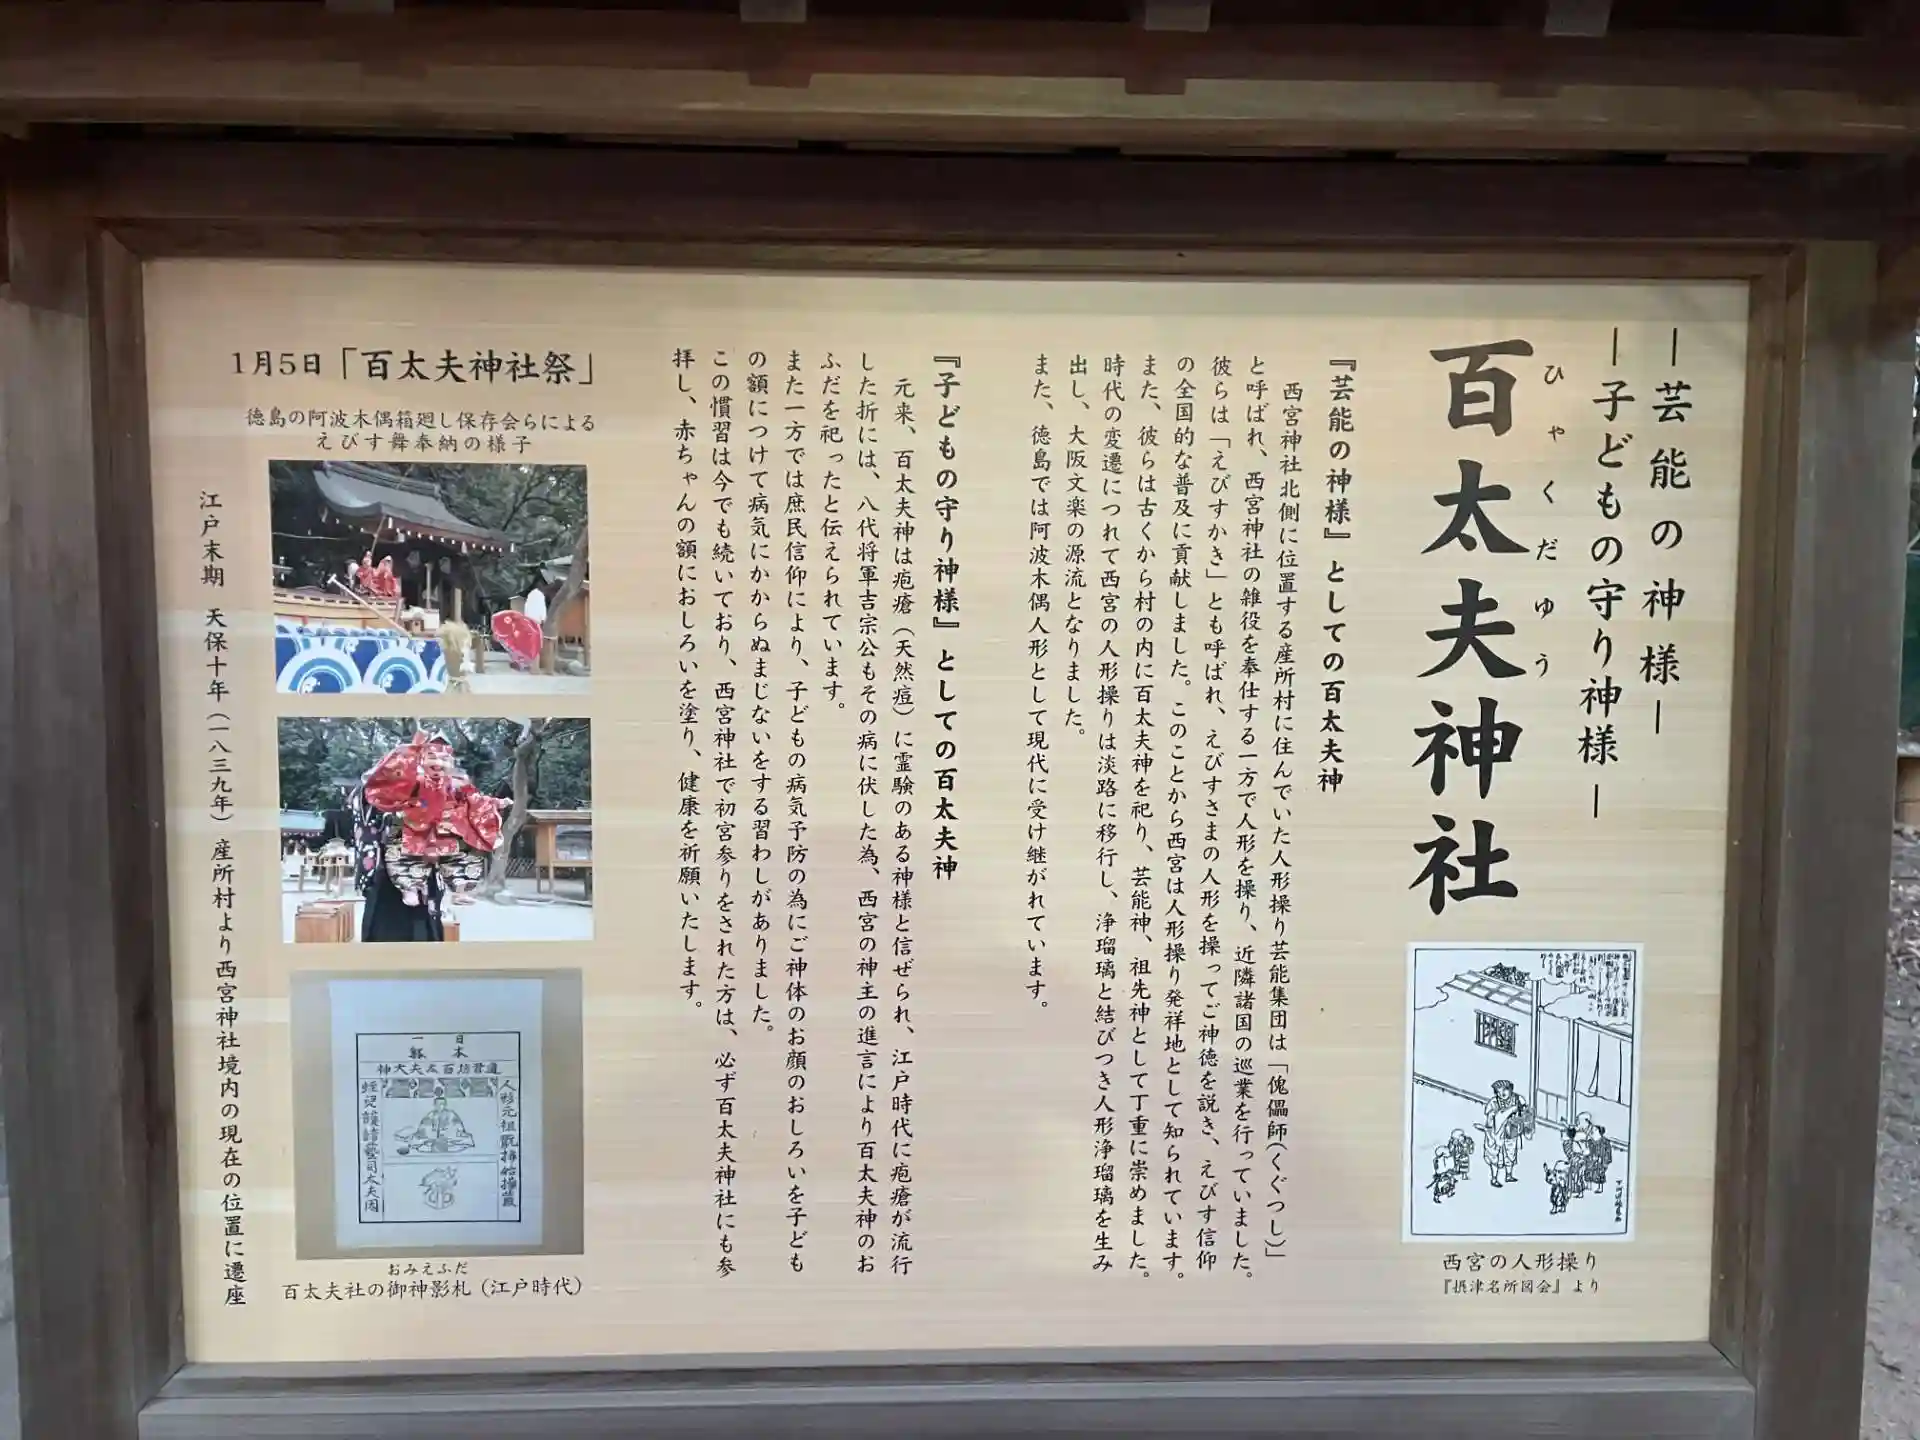 ―芸能の神様―
―子どもの守り神様―
ひゃくだゆう
百太夫神社
西宮の人形操り
『摂津名所図会』より
『芸能の神様』としての百太夫神
西宮神社北側に位置する産所村に住んでいた人形操り芸能集団は「傀儡師(くぐつし)」
と呼ばれ、西宮神社の雑役を奉仕する一方で人形を操り、近隣諸国の巡業を行っていました。
彼らは「えびすかき」とも呼ばれ、えびすさまの人形を操ってご神徳を説き、えびす信仰
の全国的な普及に貢献しました。このことから西宮は人形操り発祥地として知られています。
また、彼らは古くから村の内に百太夫神を祀り、芸能神、祖先神として丁重に崇めました。
時代の変遷につれて西宮の人形操りは淡路に移行し、浄瑠璃と結びつき人形浄瑠璃を生み
出し、大阪文楽の源流となりました。
また、徳島では阿波木偶人形として現代に受け継がれています。
『子どもの守り神様』としての百太夫神
元来、百太夫神は疱瘡(天然痘)に霊験のある神様と信ぜられ、江戸時代に疱瘡が流行
した折には、八代将軍吉宗公もその病に伏した為、西宮の神主の進言により百太夫神のお
ふだを祀ったと伝えられています。
また一方では庶民信仰により、子どもの病気予防の為にご神体のお顔のおしろいを子ども
の額につけて病気にかからぬまじないをする習わしがありました。
この慣習は今でも続いており、西宮神社で初宮参りをされた方は、必ず百太夫神社にも参
拝し、赤ちゃんの額におしろいを塗り、健康を祈願いたします。
1月5日「百太夫神社祭」
徳島の阿波木偶箱廻し保存会らによる
えびす舞奉納の様子
日本一
人形元祖
おみえふだ
百太夫社の御神影札(江戸時代)
江戸末期 天保十年(一八三九年)産所村より西宮神社境内の現在の位置に遷座